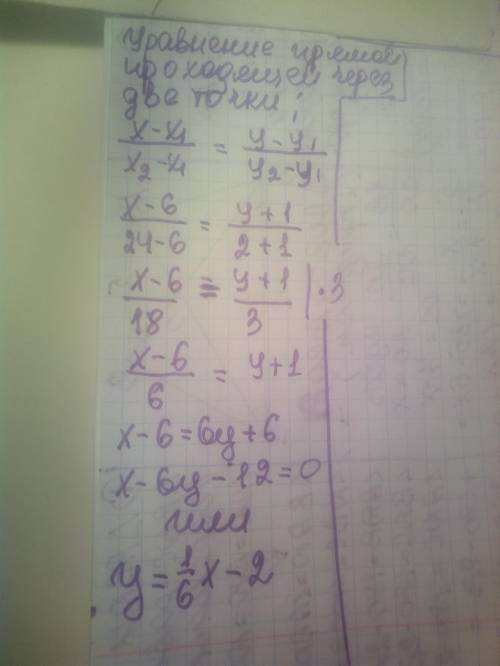 Уравнение прямой
проходящей через
две точки:
x-x₁/x₂-x₁ = y-y₁/y₂-y₁
x-6/24-6 = y+1/2+1
x-6/18 = y+1/3 | ·3
x-6/6 = y+1
x-6=6y+6
x-6y-12=0
или
y=1/6x-2